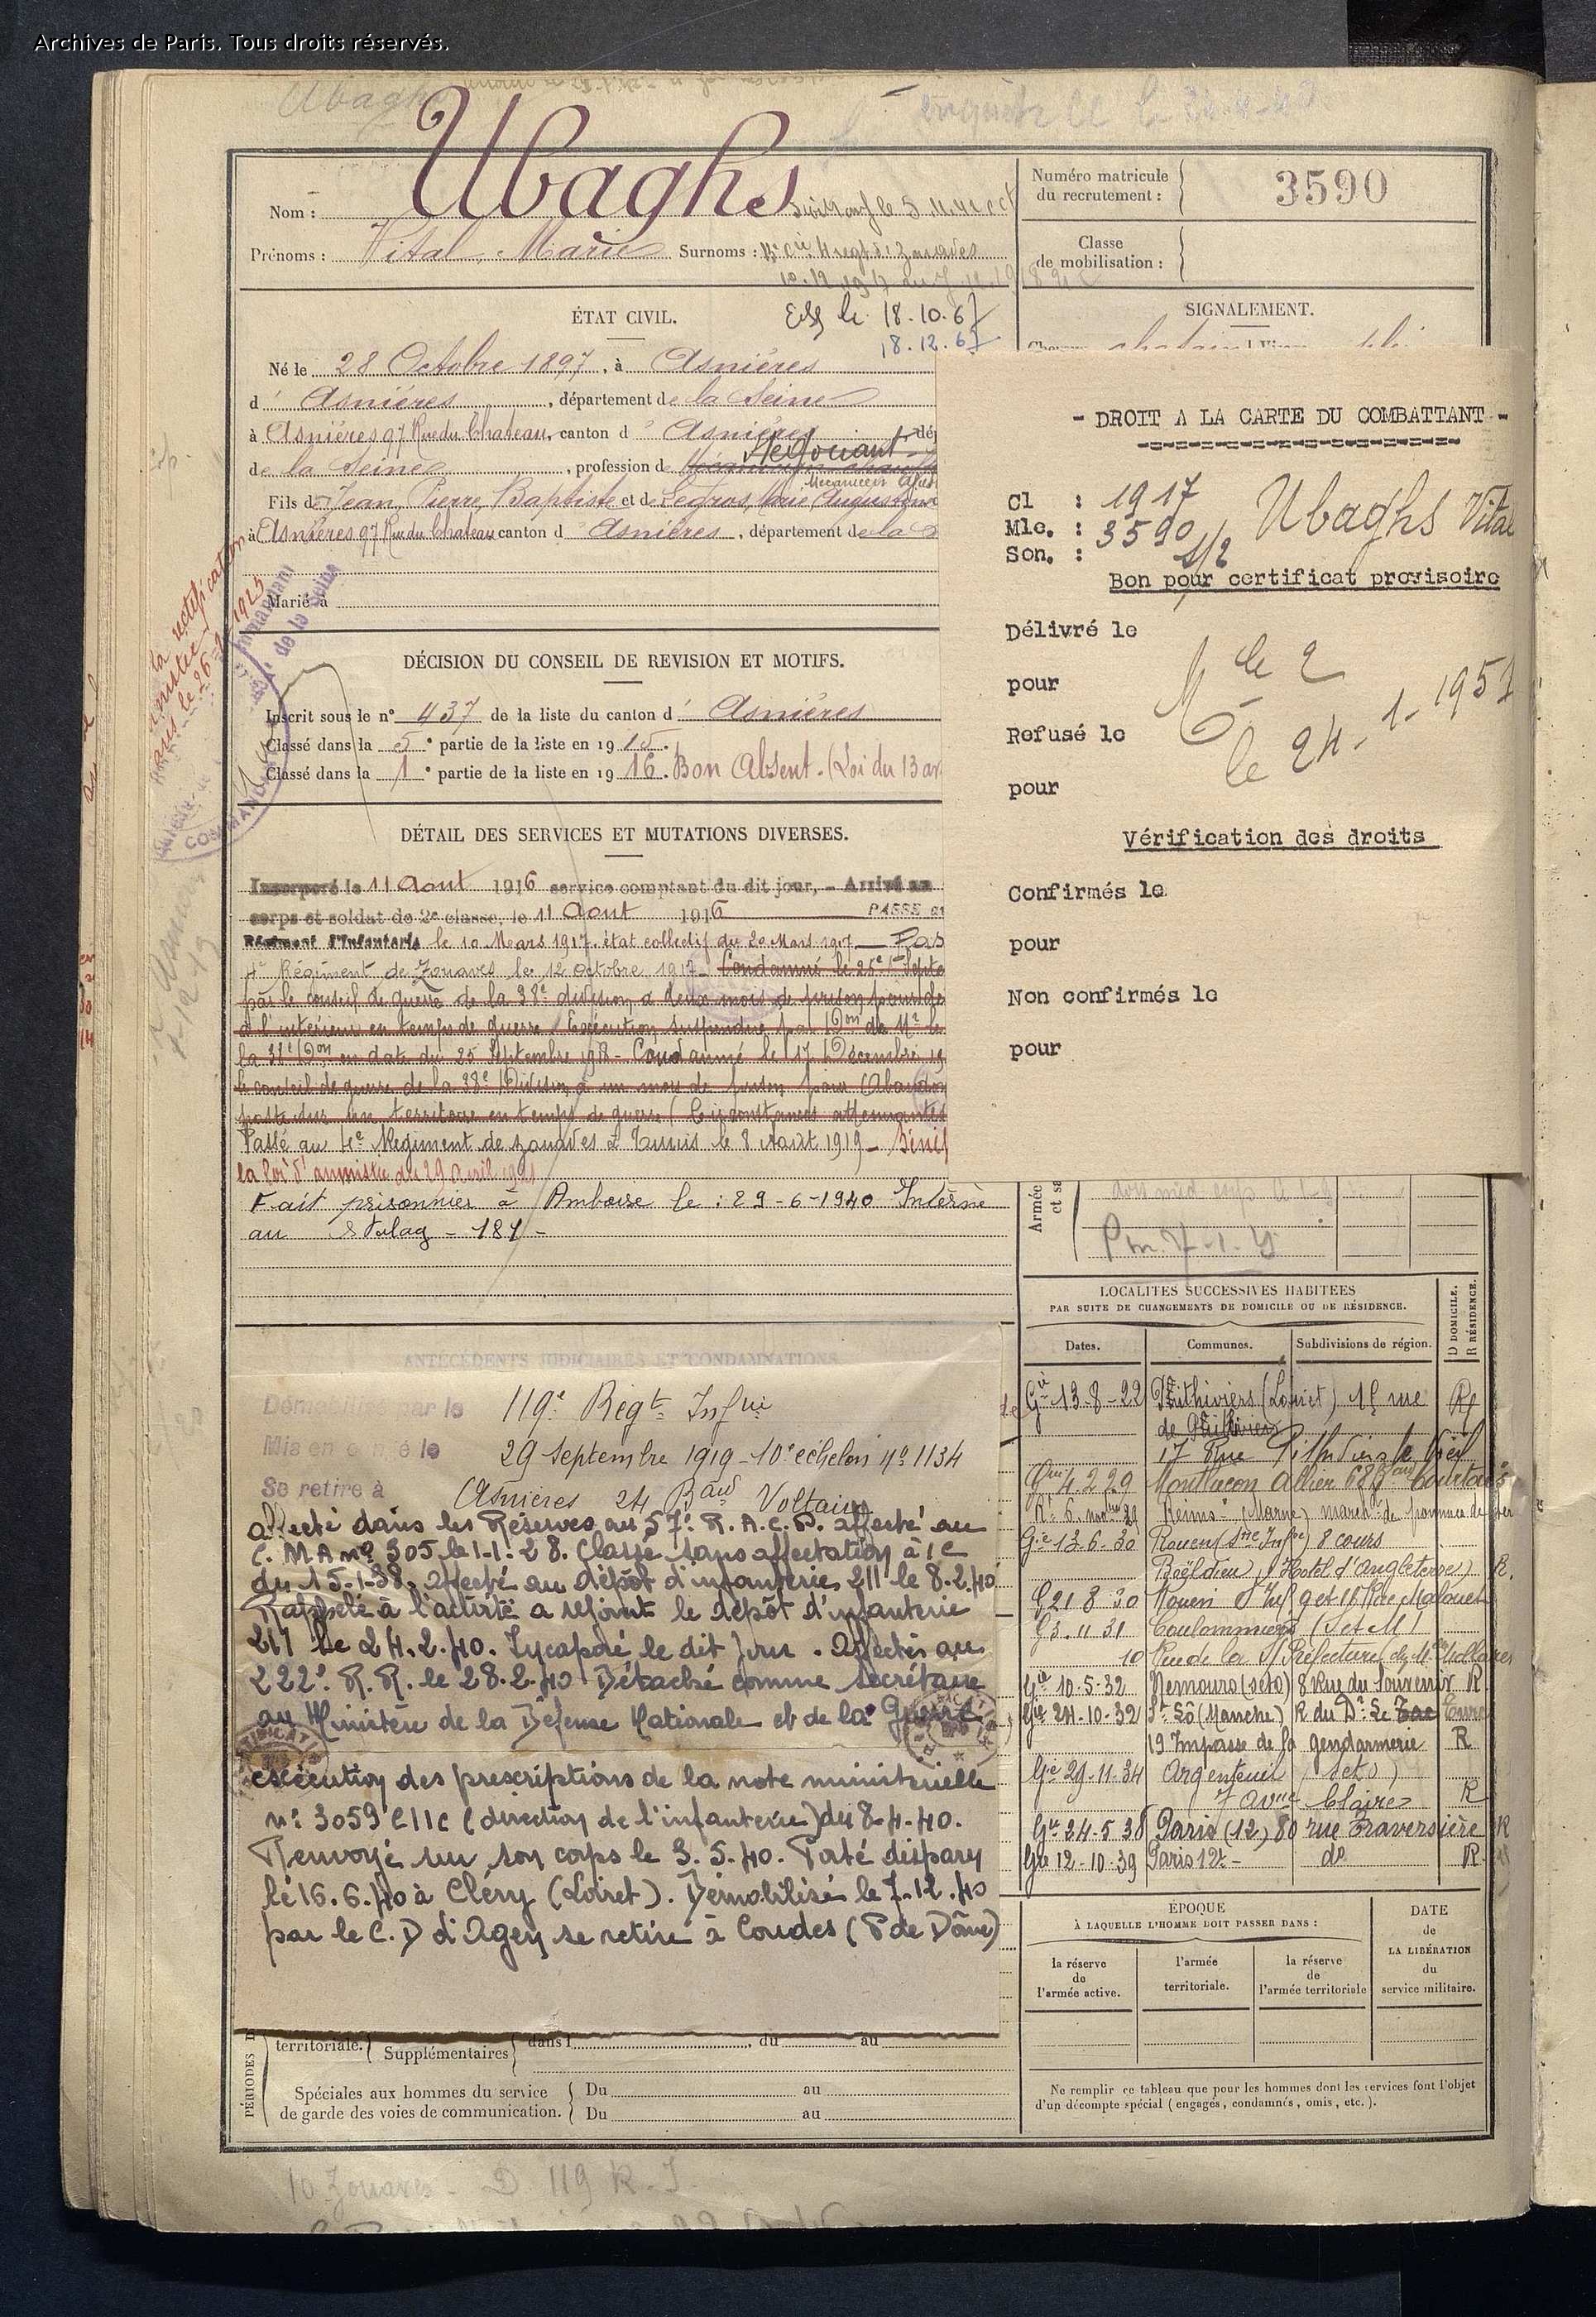 Archives de Paris. Tous droits réservés.
Ubaghs
Nom : Ubaghs
Prénoms : Vital, Marie Surnoms :
Numéro matricule
du recrutement :
3590
Classe
de mobilisation :
ÉTAT CIVIL.
le 18.10.67
18.12.67
SIGNALEMENT.
Né le 28 Octobre 1897, à Asnières
d' Asnières, département de la Seine
à Asnières 97 Rue du Chateau, canton d' Asnières, dé
de la Seine, profession de Négociant
Fils de Jean, Pierre, Baptiste et de Legros, Marie Augustine
à Asnières 97 Rue du Chateau canton d' Asnières, département de la
Marié à
DÉCISION DU CONSEIL DE REVISION ET MOTIFS.
Inscrit sous le n° 437 de la liste du canton d' Asnières
Classé dans la 5e partie de la liste en 1915.
Classé dans la 1e partie de la liste en 1916. Bon Absent. (Loi du 13 av
DÉTAIL DES SERVICES ET MUTATIONS DIVERSES.
Incorporé le 11 Aout 1916 service comptant du dit jour, - Arrivé au
corps et soldat de 2e classe, le 11 Aout 1916 PASSÉ au
Régiment d'Infanterie le 10 Mars 1917. état collectif du 20 Mars 1917 — Pas
4e Régiment de Zouaves le 12 octobre 1917 - Condamné le 25 Septe
par le conseil de guerre de la 38e division, à deux mois de prison pour de
à l'intérieur en temps de guerre. Exécution suspendue par Don de Mr le
la 38e Don en date du 25 Septembre 1918 - Condamné le 17 Décembre 19
le conseil de guerre de la 38e Division à un mois de prison pour (Abandon
poste sur un territoire en temps de guerre (Circonstances atténuantes
Passé au 4e Régiment de zouaves à Tunis le 8 Août 1919 —
la loi d'amnistie du 29 Avril 1921
Fait prisonnier à Amboise le : 29-6-1940 Interné
au Stalag - 181 -
ANTÉCÉDENTS JUDICIAIRES ET CONDAMNATIONS
119e Regt Infrie
Mis en congé le 29 septembre 1919 - 10e échelon No 1134
Se retire à Asnières 24 Bard Voltaire
affecté dans les Réserves au 57e R.A.C.P. affecté au
C.M.A no 305 le 1-1-28. Classé sans affectation à / c
du 15-1-38. affecté au dépôt d'infanterie 211 le 8.2.40
Rappelé à l'activité a rejoint le dépôt d'infanterie
211 le 24.2.40. Incorporé le dit jour. Affecté au
222e R.R. le 28.2.40 Détaché comme secrétaire
au Ministère de la Défense Nationale et de la Guerre
exécution des prescriptions de la note ministérielle
n° 3059 E11C (direction de l'infanterie) du 8-4-40.
Renvoyé sur son corps le 3.5.40. Porté disparu
le 16.6.40 à Cléry (Loiret). Démobilisé le 7.12.40
par le C.D d'Agen, se retire à Coudes (P de Dôme)
- DROIT A LA CARTE DU COMBATTANT -
Cl : 1917
Mle. : 3590
Son. : S/2
Ubaghs Vital
Bon pour certificat provisoire
Délivré le
pour
Refusé le
le 24-1-1951
pour
Vérification des droits
Confirmés le
pour
Non confirmés le
pour
Armée
LOCALITÉS SUCCESSIVES HABITÉES
PAR SUITE DE CHANGEMENTS DE DOMICILE OU DE RÉSIDENCE.
D DOMICILE.
R RÉSIDENCE.
Dates. Communes. Subdivisions de région.
Gie 13-8-22 Pithiviers (Loiret) 15 rue R
17 Rue Pithiviers le Vieil
4.2.29 Montluçon Allier 68 Bard Courtais
Rt 6. novbre 29 Reims (Marne) marché de
Gie 13.6.30 Rouen (Sne Infre) 8 cours
Boëldieu (Hotel d'Angleterre) R.
G 21 8 30 Rouen S Inf 9 et 11 Rue
G 3.11 31 Coulommiers (S et M)
10 Rue de la S/Préfecture
Gie 10.5.32 Nemours (S et O) 8 Rue du Souvenir R
Gie 24-10-32 St Lô (Manche) R du Dr Le
19 Impasse de la gendarmerie R
Gie 29-11-34 Argenteuil (S et O)
7 avnue Claire R
Gie 24-5-38 Paris (12) 80 rue Traversière R
Gie 12-10-39 Paris 12e - do R
ÉPOQUE
À LAQUELLE L'HOMME DOIT PASSER DANS :
la réserve
de
l'armée active.
l'armée
territoriale.
la réserve
de
l'armée territoriale
DATE
de
LA LIBÉRATION
du
service militaire.
Ne remplir ce tableau que pour les hommes dont les services font l'objet
d'un décompte spécial (engagés, condamnés, omis, etc.).
territoriale. Supplémentaires dans l , du au
PÉRIODES D
Spéciales aux hommes du service
de garde des voies de communication.
Du au
Du au
10 Zouaves - D 119 R.I.